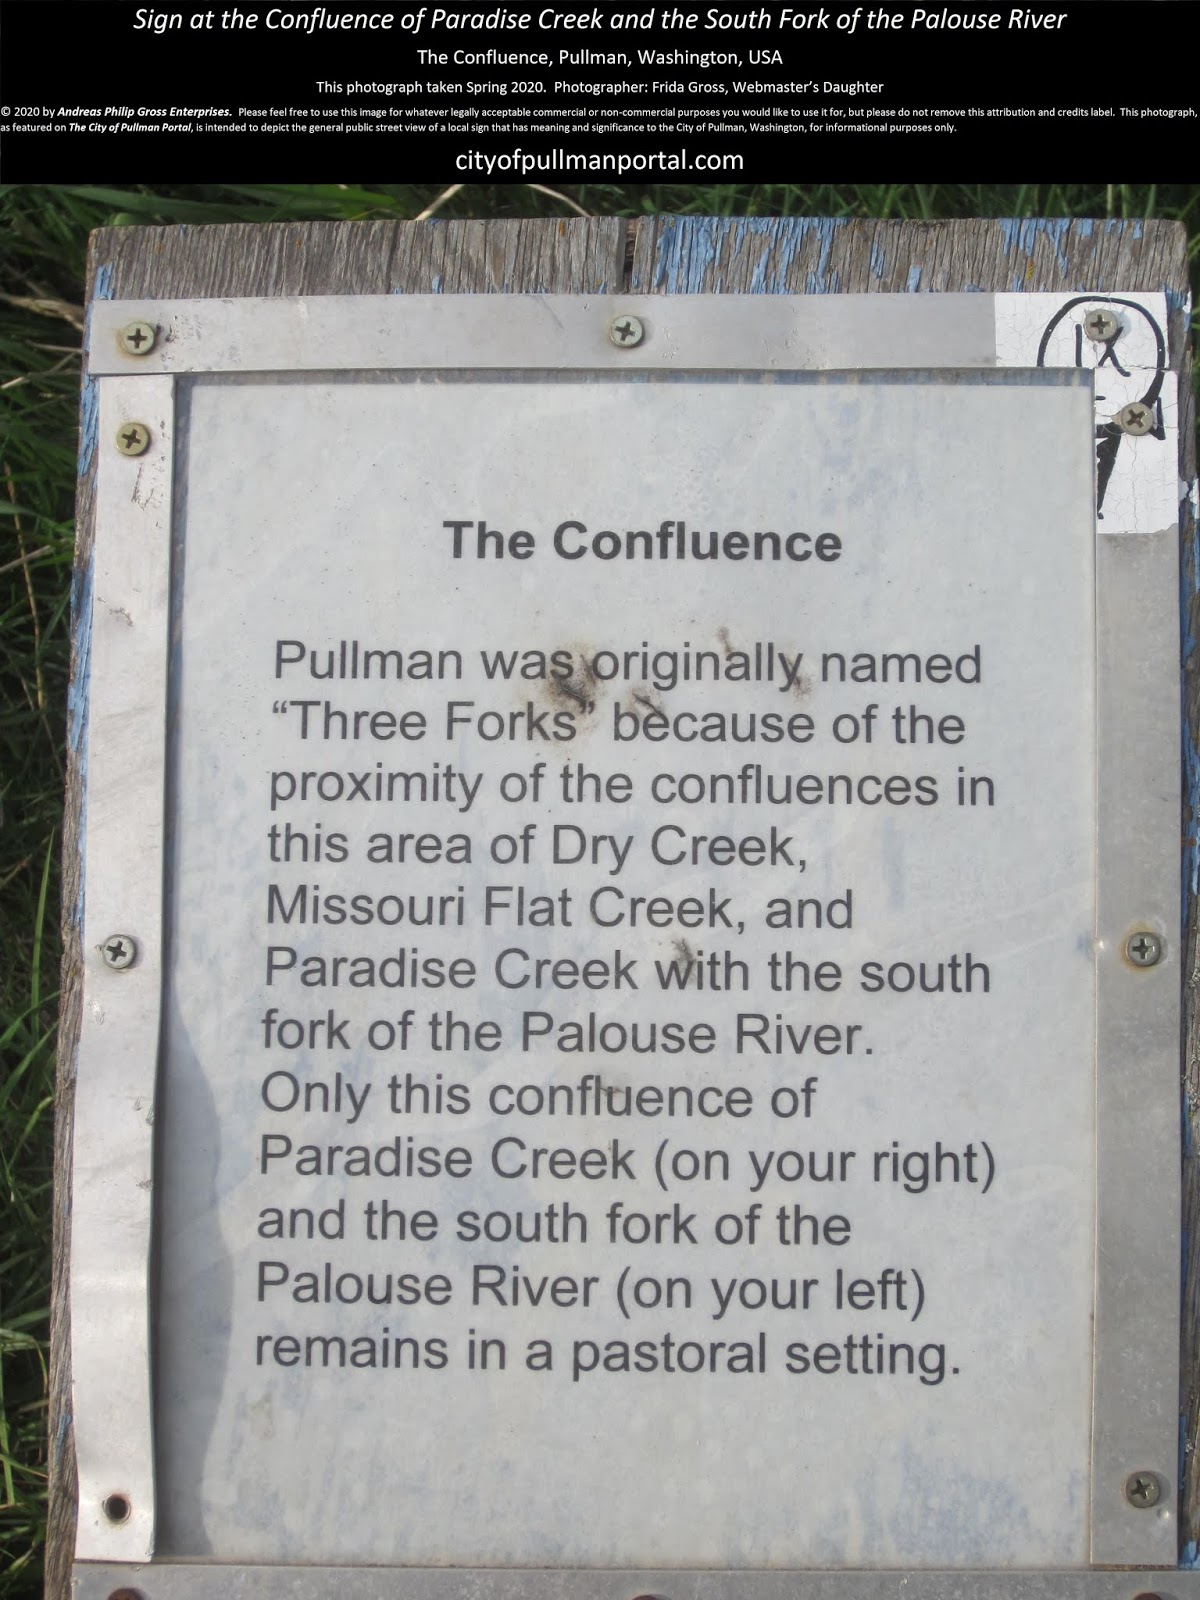 Sign at the Confluence of Paradise Creek and the South Fork of the Palouse River
The Confluence, Pullman, Washington, USA
This photograph taken Spring 2020.  Photographer: Frida Gross, Webmaster's Daughter
© 2020 by Andreas Philip Gross Enterprises.  Please feel free to use this image for whatever legally acceptable commercial or non-commercial purposes you would like to use it for, but please do not remove this attribution and credits label.  This photograph,
as featured on The City of Pullman Portal, is intended to depict the general public street view of a local sign that has meaning and significance to the City of Pullman, Washington, for informational purposes only.
cityofpullmanportal.com
The Confluence
Pullman was originally named
“Three Forks” because of the
proximity of the confluences in
this area of Dry Creek,
Missouri Flat Creek, and
Paradise Creek with the south
fork of the Palouse River.
Only this confluence of
Paradise Creek (on your right)
and the south fork of the
Palouse River (on your left)
remains in a pastoral setting.